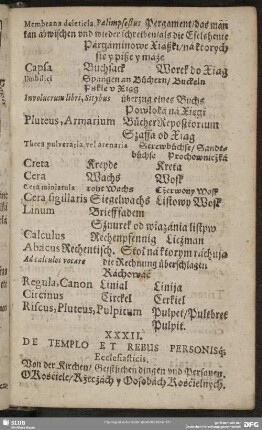 Membrana deleticia, Palimpsestus Pergament/das man
kan abwischen und wieder schreiben als die Eselshente
Pargaminowe Xiaßki/na ktorych
sie y pisze y maze
Capsa Buchsack Worek do Xiag
Umbilici Spangen an Büchern/Buckeln
Pukle v Xiag
Involucrum libri, Sitybus überzug eines Buchs
Powloka na Xięgi
Pluteus, Armarium Bücher Repositorium
Szaffa od Xiag
Theca pulveraria, vel arenaria Strewbüchse/Sandt-
büchse Prochowniczka
Creta Kreyde Kreta
Cera Wachs Wosk
Cera miniatula roht Wachs Czerwony Wosk
Cera sigillaris Siegelwachs Listowy Wosk
Linum Brieffadem
Sznurek od wiązania listow
Calculus Rechenpfennig Liczman
Abacus Rechentisch, Stol na ktorym rachuja
Ad calculos vocare die Rechnung überschlagen
Rachować
Regula, Canon Linial Linija
Circinus Circkel Cerkiel
Riscus, Pluteus, Pulpitum Pulpet/Pulebret
Pulpit.
XXXII.
DE TEMPLO ET REBUS PERSONISq́;
Ecclesiasticis.
Von der Kirchen/Geistlichen dingen und Personen.
O Kosciele/Rzeczach y Osobach Koscielnych.
SLUB
DFG